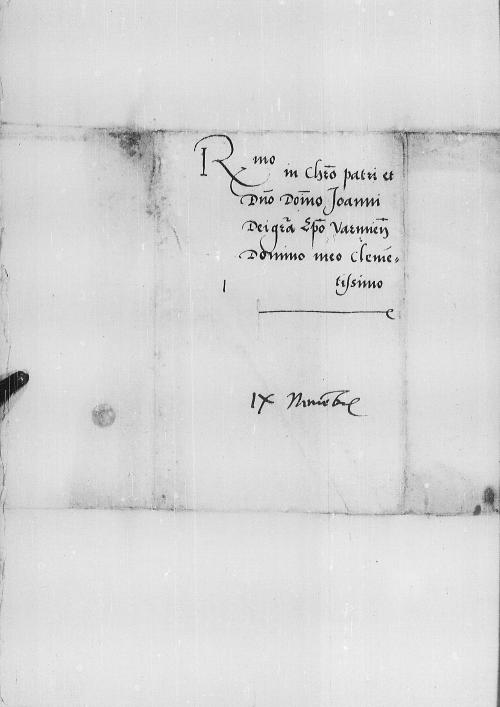 Rmo
in Chro patri et
Dno Domino Joanni
Dei gra Epo Varmien
Domino meo Cleme-
tissimo
IX Novembr